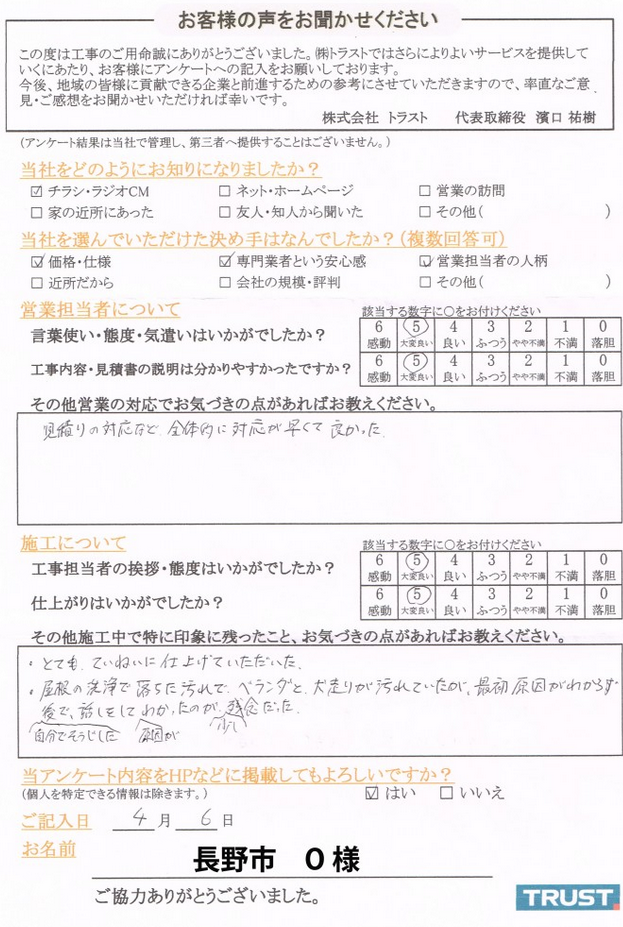 お客様の声をお聞かせください
この度は工事のご用命誠にありがとうございました。㈱トラストではさらによりよいサービスを提供して
いくにあたり、お客様にアンケートへの記入をお願いしております。
今後、地域の皆様に貢献できる企業と前進するための参考にさせていただきますので、率直なご意
見・ご感想をお聞かせいただければ幸いです。
株式会社 トラスト 代表取締役 濱口 祐樹
(アンケート結果は当社で管理し、第三者へ提供することはございません。)
当社をどのようにお知りになりましたか？
☑ チラシ・ラジオCM □ ネット・ホームページ □ 営業の訪問
□ 家の近所にあった □ 友人・知人から聞いた □ その他( )
当社を選んでいただけた決め手はなんでしたか？(複数回答可)
☑ 価格・仕様 ☑ 専門業者という安心感 ☑ 営業担当者の人柄
□ 近所だから □ 会社の規模・評判 □ その他( )
営業担当者について 該当する数字に○をお付けください
言葉使い・態度・気遣いはいかがでしたか？ 6 5 4 3 2 1 0
感動 大変良い 良い ふつう やや不満 不満 落胆
工事内容・見積書の説明は分かりやすかったですか？ 6 5 4 3 2 1 0
感動 大変良い 良い ふつう やや不満 不満 落胆
その他営業の対応でお気づきの点があればお教えください。
見積りの対応など、全体的に対応が早くて良かった。
施工について 該当する数字に○をお付けください
工事担当者の挨拶・態度はいかがでしたか？ 6 5 4 3 2 1 0
感動 大変良い 良い ふつう やや不満 不満 落胆
仕上がりはいかがでしたか？ 6 5 4 3 2 1 0
感動 大変良い 良い ふつう やや不満 不満 落胆
その他施工中で特に印象に残ったこと、お気づきの点があればお教えください。
・とても、ていねいに仕上げていただいた。
・屋根の洗浄で落ちた汚れで、ベランダと、犬走りが汚れていたが、最初原因がわからず
後で、話しをしてわかったのが、残念だった。
自分でそうじした 原因が 少し
当アンケート内容をHPなどに掲載してもよろしいですか？
(個人を特定できる情報は除きます。) ☑ はい □ いいえ
ご記入日 4月 6日
お名前 長野市 O様
ご協力ありがとうございました。
TRUST.